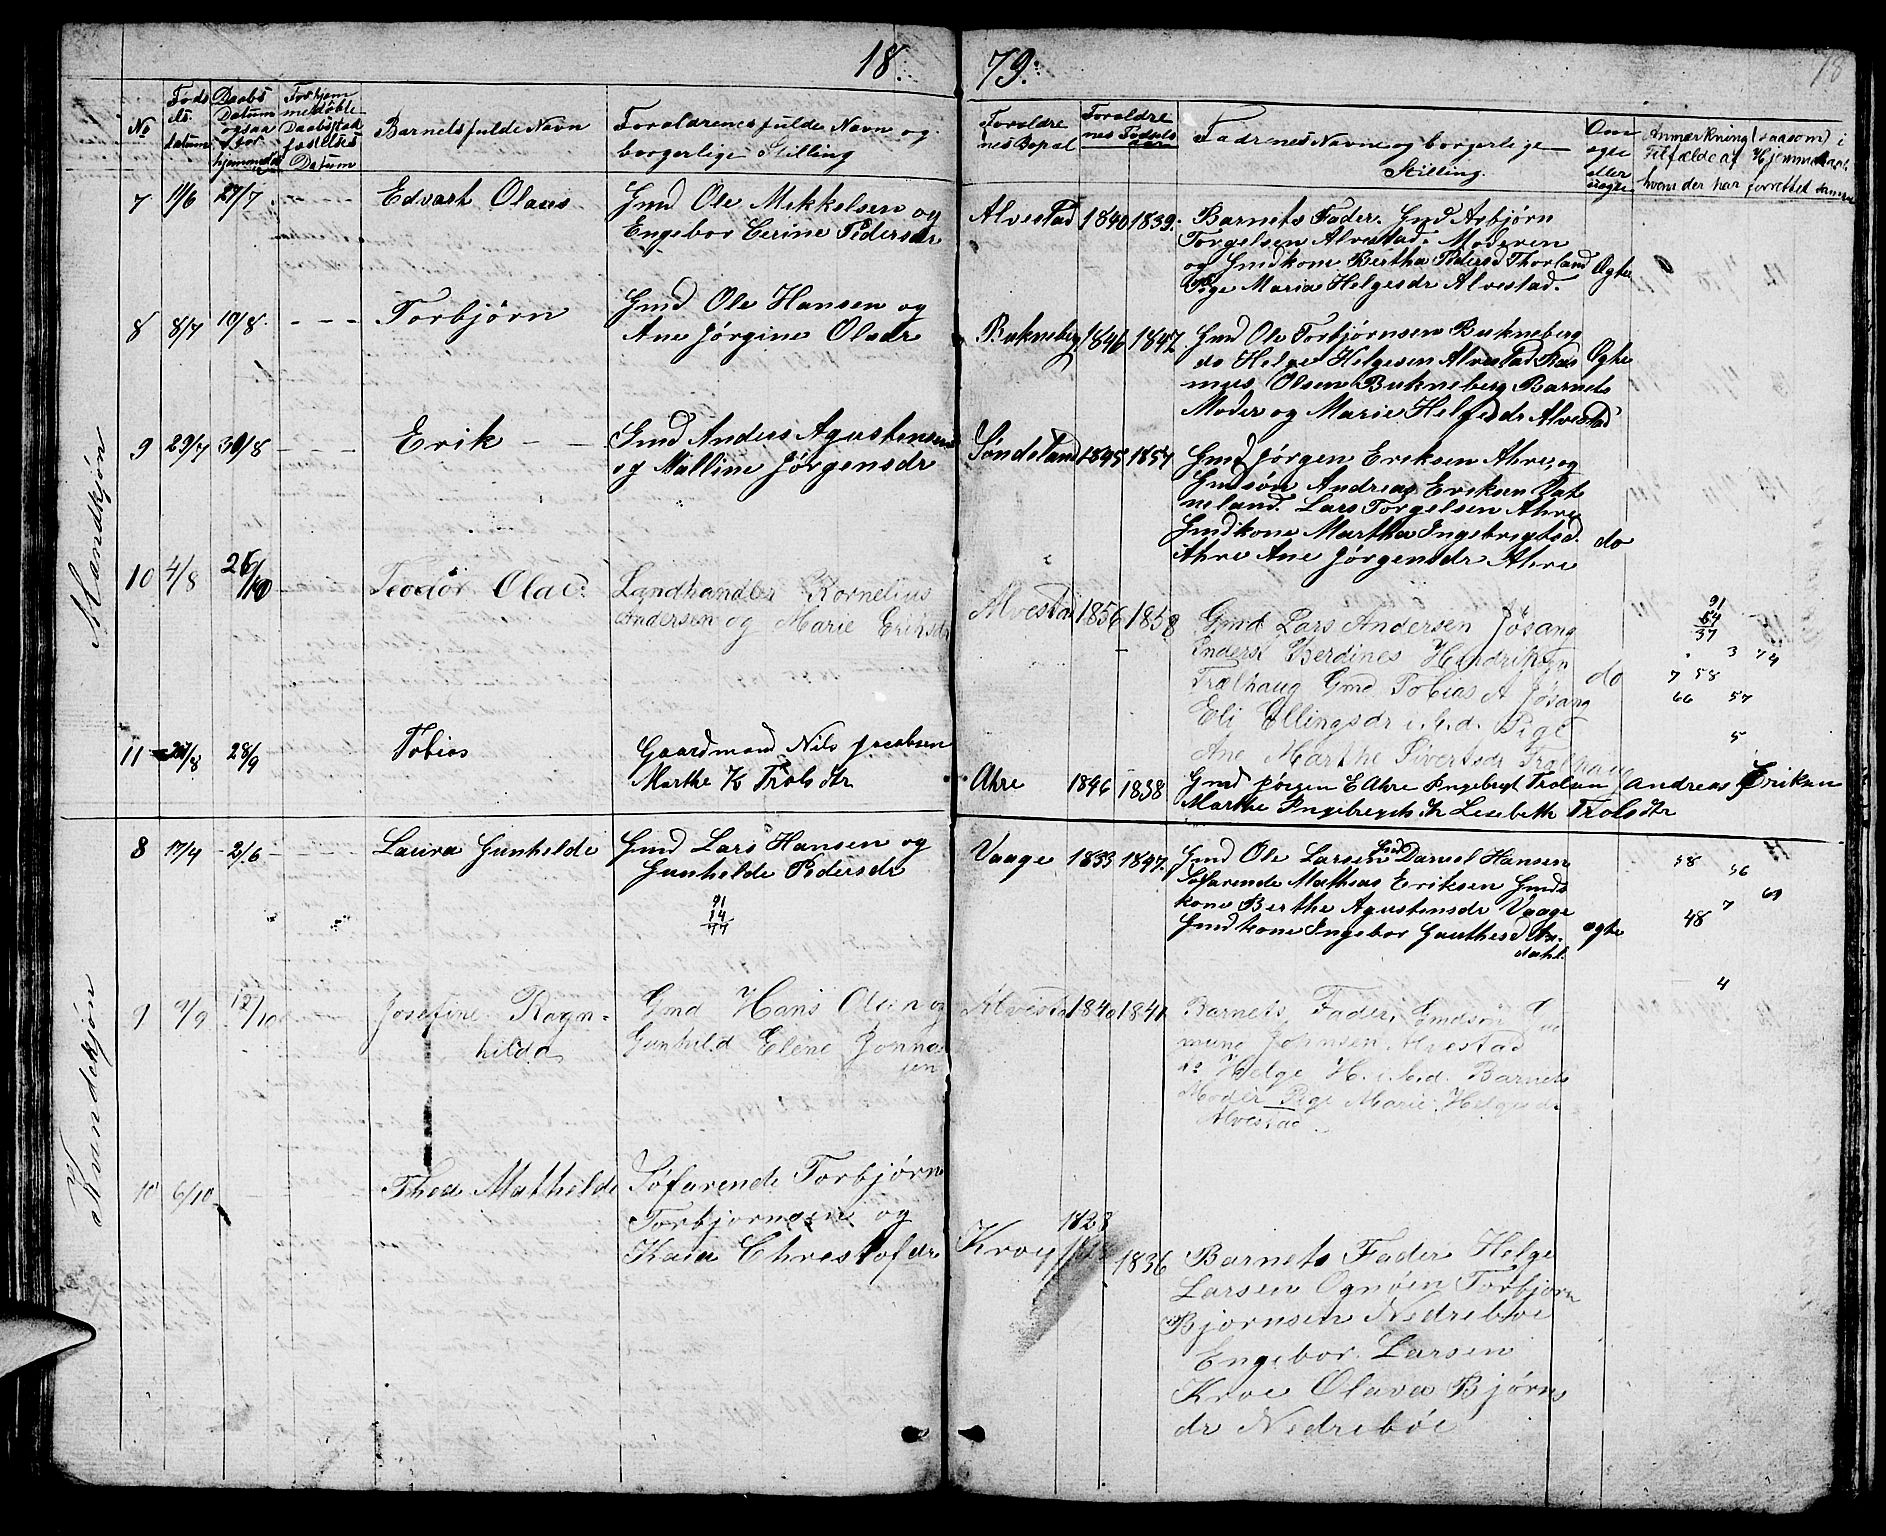 18 79. 78
No
Føds
els
datum
Daabs
Datum
ogsaa
for
hjemmedøbt
For hjem
medøbte
Daabsstad
fæstelses
Datum
Barnets fulde Navn
Forældrenes fulde Navn og
borgerlige Stilling
Forældre
nes Bopæl
Forældre
nes Fødsels
aar
Fadrnes Navne og borgerlige
Stilling.
Om
ægte
eller
uægte
Anmærkning (saasom) i
Tilfælde af Hjemmedaab
hvem der har forrettet samme
Mandkjøn
7 11/6 27/7 - - - Edvart Olaus
Gmd Ole Mikkelsen og
Engebor Cerine Pedersdr
Alvestad 1840 1839.
Barnets Fader. Gmd Asbjørn
Torgelsen Alvestad. Moderen
og Gmdkone Bertha Pedersd Thorland
Pige Maria Helgesdr Alvestad.
Ægte
8 8/7 10/8. - - - Torbjørn
Gmd Ole Hansen og
Ane Jørgine Olsdr
Bukneberg 1846 1847.
Gmd Ole Torbjørnsen Bukneberg
do Helge Helgesen Alvestad Ras
mus Olsen Bukneberg Barnets
Moder og Marie Helgesdr Alvestad
Ægte
9 29/7 30/8 - - - Erik - -
Gmd Anders Agustensen
og Malline Jørgensdr
Søndeland 1845 1857
Gmd Jørgen Eriksen Ahre, og
Gmdsøn Andreas Eriksen Vat
neland. Lars Torgelsen Ahre
Gmdkone Martha Ingebrigtsd.
Ahre Ane Jørgensdr Ahre
do
10 4/8 26/10 Teodor Olai
Landhandler Kornelius
Andersen og Marie Eriksdr
Alvestad 1856 1858
Gmd Lars Andersen Jøsang
Inderst Berdines Hendriksen
Trælhaug Gmd Tobias A Jøsang
Eli Ellingsdr i.b.d. Pige
Ane Marthe Sivertsdr Trælhaug
do
91
54
37
3 74
7 58
66 57
5
11 27/8 28/9 Tobias
Gaardmand Nils Jacobsen
Marthe K Trolsdtr
Ahre 1846 1838
Gmd Jørgen E Ahre Ingebregt Trolsen Andreas Eriksen
Marthe Ingebregtsdtr Lisebeth Trolsdtr
Kvindekjøn
8 17/4 2/6 - - - Laura Gunhilde
Gmd Lars Hansen og
Gunhilde Pedersdr
91
14
77
Vaage 1833 1847.
Gmd Ole Larsen Daniel Hansen
Søfarende Mathias Eriksen Gmds
kone Berthe Agustensdr Vaage
Gmdkone Ingebor Gauthesd An-
dahl.
ægte
58 56
7 69
48
4
9 9/9 12/10 Josefine Ragn-
hilda
Gmd Hans Olsen og
Gunhild Elene Jonna
sen
Alvestad 1840 1841
Barnets Fader, Gmdsøn
mund Johnsen Alvestad
do Helge H. i.b.d. Barnets
Moder Pige Marie Helgesdr
Alvestad
10 6/10 Thea Mathilde
Søfarende Torbjørn
Torbjornsen og
Kaia Chrestofdr
Kroe 1828 1836
Barnets Fader Helge
Larsen Ognøen Torbjørn
Bjørnsen Nedrebøe
Engebor Larsen
Kroe Olava Bjørns
dr Nedrebøe